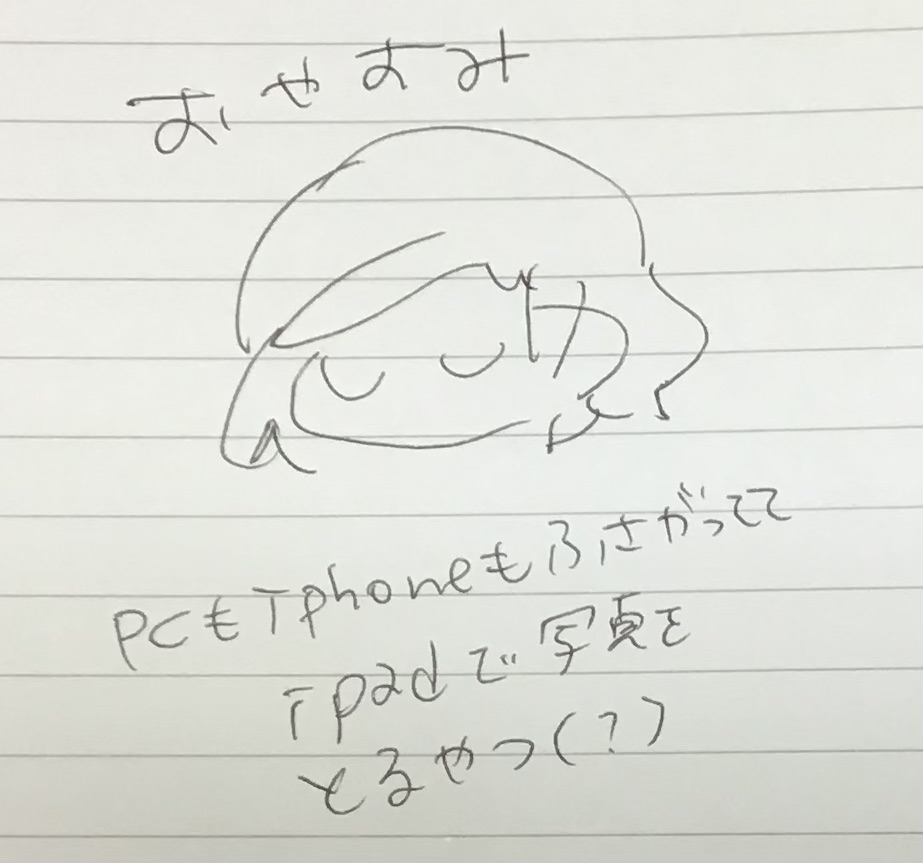 おやすみ
PCもiphoneもふさがってて
ipadで写真を
とるやつ(?)